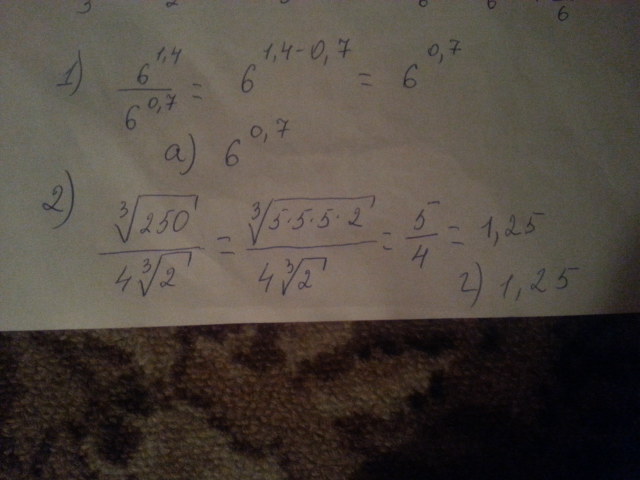 3 2 6 6 6
1) 6^1,4 / 6^0,7 = 6^1,4-0,7 = 6^0,7
а) 6^0,7
2) ∛250 / 4∛2 = ∛5·5·5·2 / 4∛2 = 5/4 = 1,25
г) 1,25